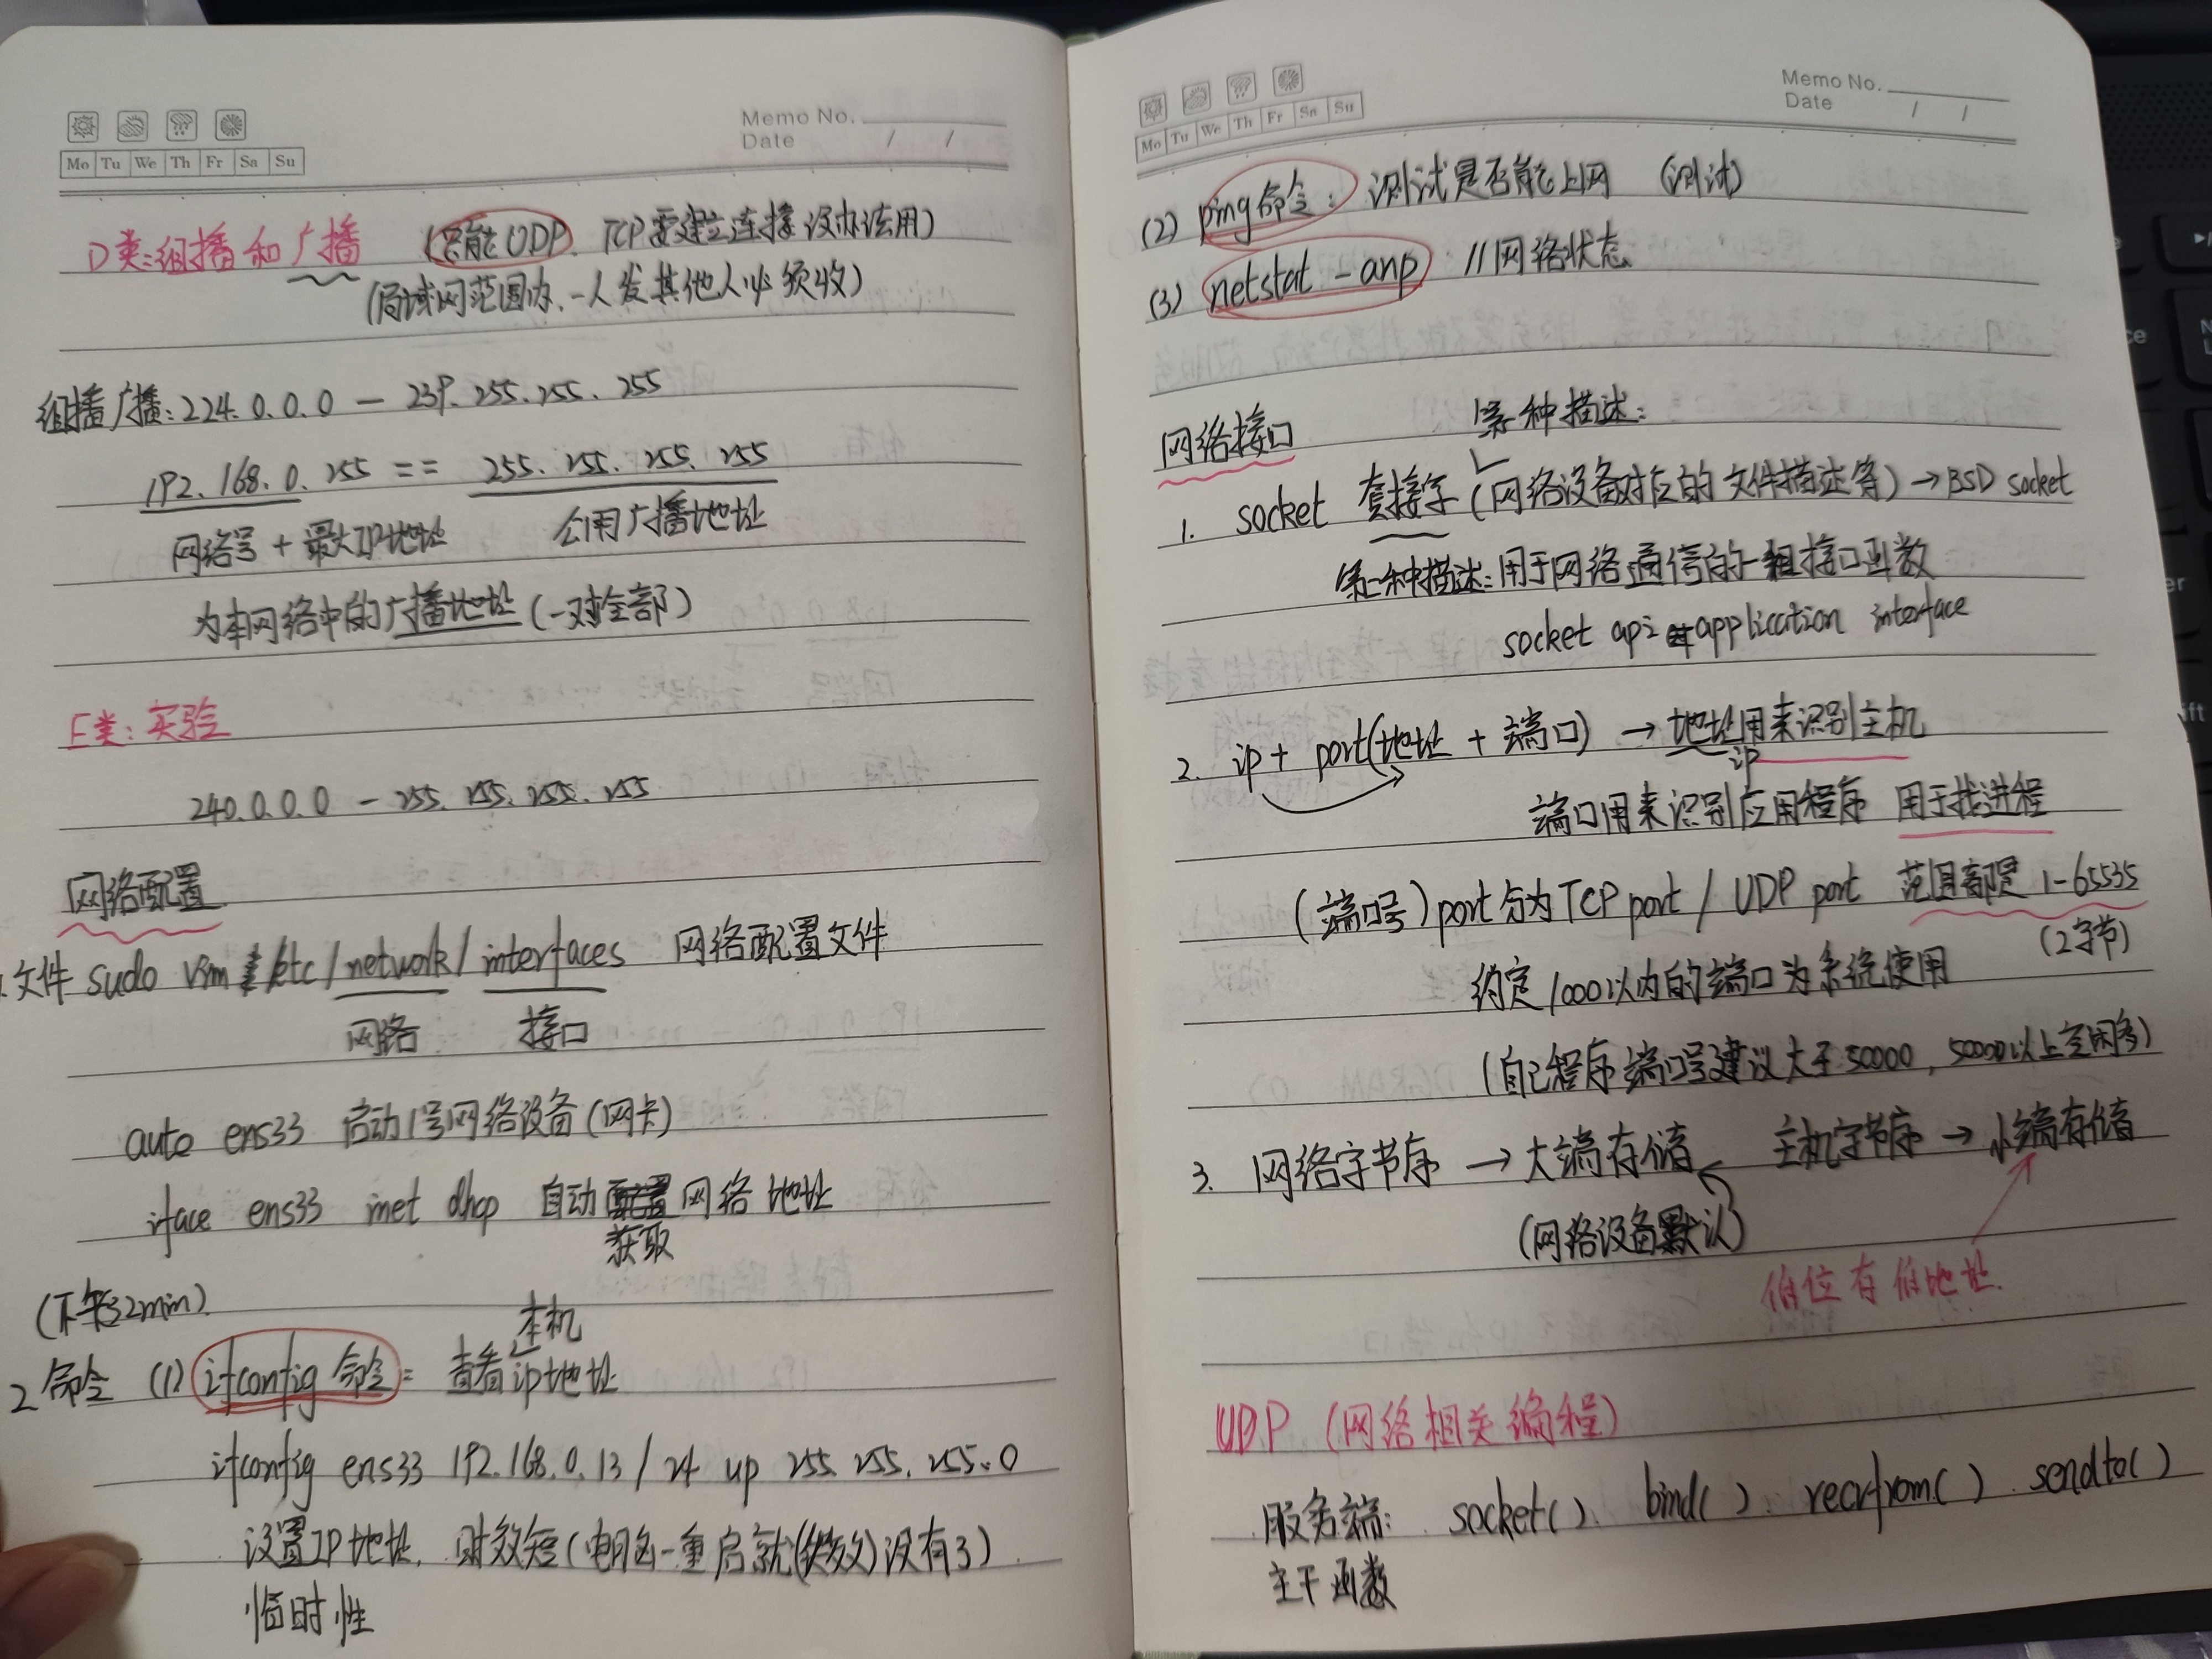 Memo No.
Date / /
Mo Tu We Th Fr Sa Su
D类:组播和广播 (只能UDP、TCP要建立连接没办法用)
(局域网范围内、一人发其他人必须收)
组播广播:224.0.0.0 — 239.255.255.255
192.168.0.255 == 255.255.255.255
网络号 + 最大IP地址 公用广播地址
为本网络中的广播地址(一对全部)
E类:实验
240.0.0.0 — 255.255.255.255
网络配置
1.文件 sudo vim /etc/network/interfaces 网络配置文件
网络 接口
auto ens33 启动1号网络设备(网卡)
iface ens33 inet dhcp 自动网络地址
获取
(下午32min)
本机
2 命令 (1) ifconfig 命令: 查看ip地址
ifconfig ens33 192.168.0.13/24 up 255.255.255.0
设置IP地址, 时效短(电脑一重启就(失效)没有了)
临时性
Memo No.
Date / /
Mo Tu We Th Fr Sa Su
(2) ping命令: 测试是否能上网 (测试)
(3) netstat -anp //网络状态
网络接口 第一种描述:
1. socket 套接字(网络设备对应的文件描述符)→BSD socket
第二种描述:用于网络通信的一组接口函数
socket api application interface
2. ip + port(地址 + 端口) → 地址用来识别主机
ip
端口用来识别应用程序 用于找进程
(端口号) port分为TCP port / UDP port 范围都是 1-65535
(2字节)
约定1000以内的端口为系统使用
(自己程序端口号建议大于50000,50000以上空闲多)
3. 网络字节序 → 大端存储 主机字节序 → 小端存储
(网络设备默认)
低位存低地址.
UDP (网络相关编程)
服务端: socket()、bind()、recvfrom()、sendto()
主干函数